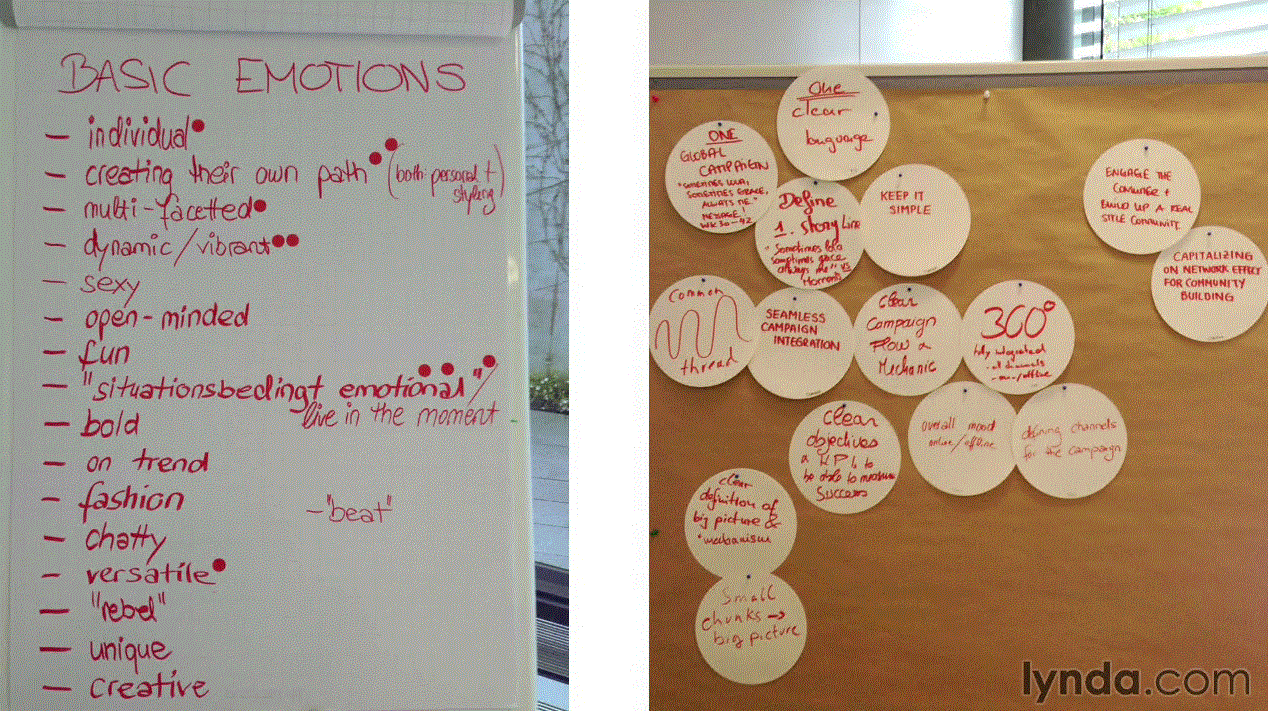 BASIC EMOTIONS
- individual
- creating their own path (both personal +
styling)
- multi-facetted
- dynamic/vibrant
- sexy
- open-minded
- fun
- "situationsbedingt emotional"/
live in the moment
- bold
- on trend
- fashion
- "beat"
- chatty
- versatile
- "rebel"
- unique
- creative
One
clear
language
ONE
GLOBAL
CAMPAIGN
ALWAYS ME."
MESSAGE,
WK 30-42
Define
1. Story Line
"Sometimes
sometimes
always me" vs
KEEP IT
SIMPLE
ENGAGE THE
CONSUMER +
BUILD UP A REAL
STYLE COMMUNITY
CAPITALIZING
ON NETWORK EFFECT
FOR COMMUNITY
BUILDING
Common
thread
SEAMLESS
CAMPAIGN
INTEGRATION
Clear
Campaign
Flow &
Mechanic
360°
fully integrated
- all channels
- on-/offline
clear
objectives
& KPIs to
be able to measure
success
overall mood
online/offline
defining channels
for the campaign
clear
definition of
big picture &
mechanism
Small
chunks →
big picture
lynda.com